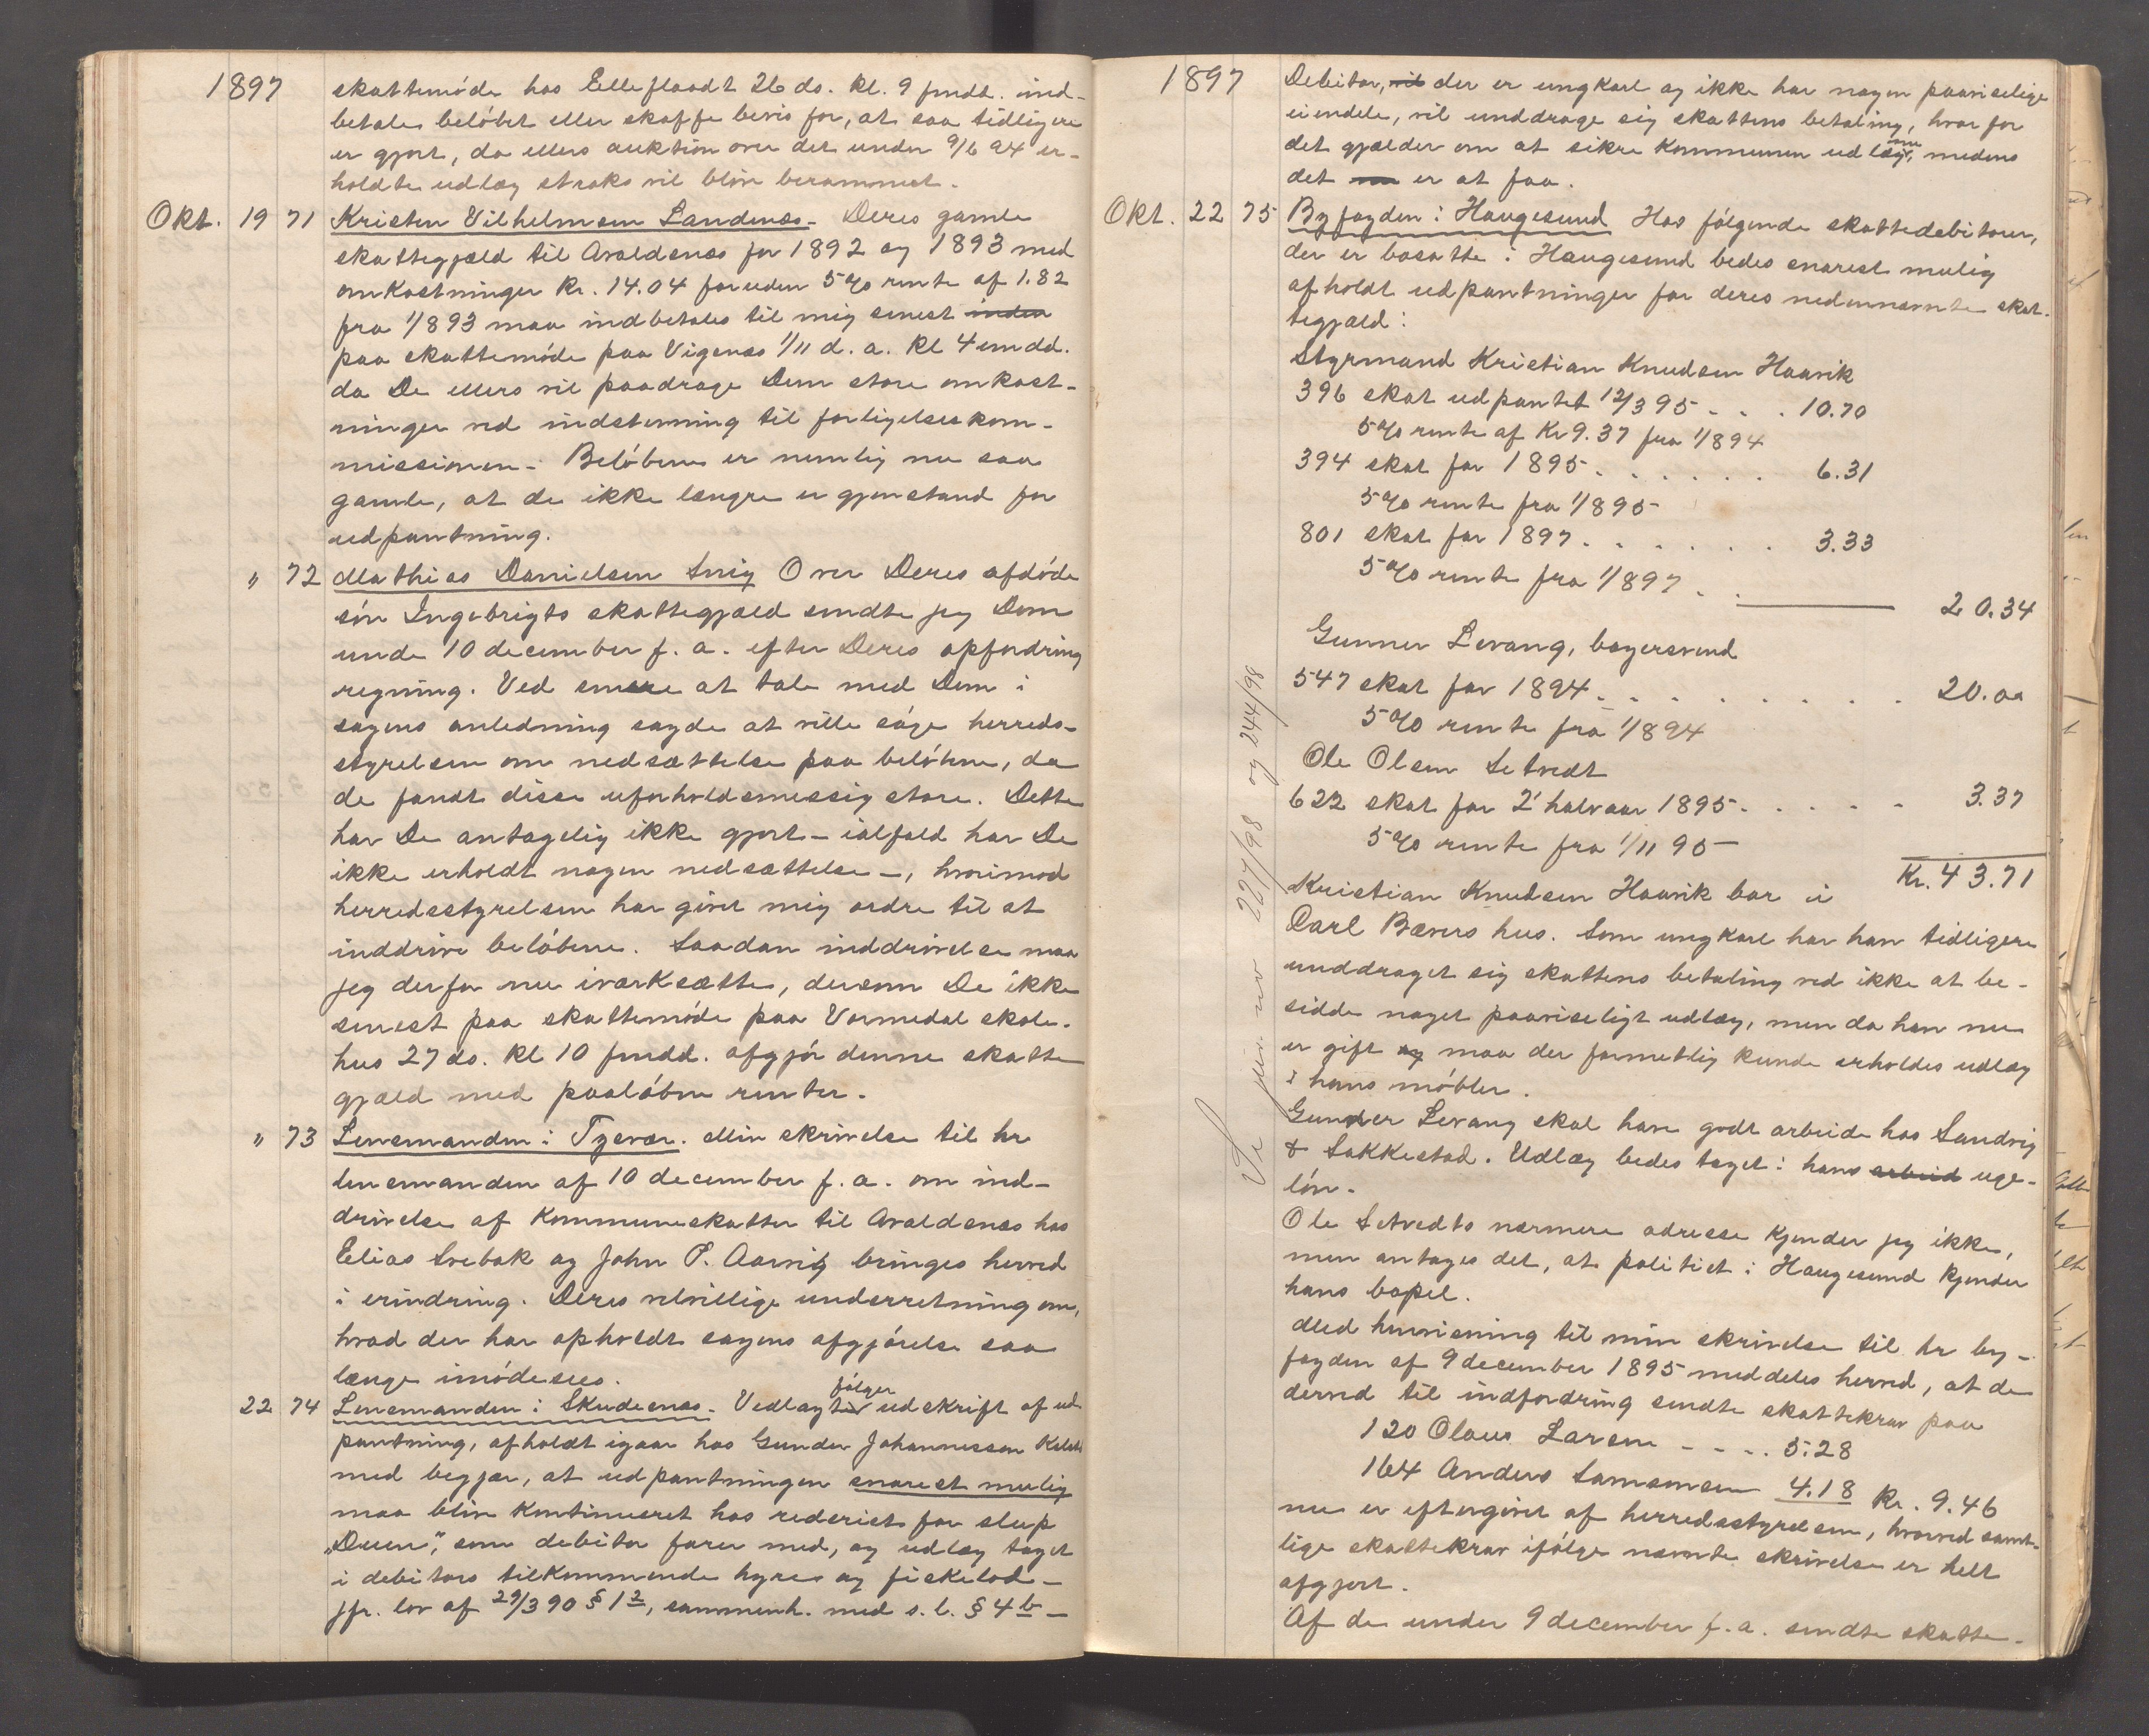 1897
skattemøde hos Elleflaadt 26 ds. kl. 9 fmdd. ind-
betales beløbet eller skaffe bevis for, at saa tidligere
er gjort, da ellers auktion over det under 9/6 94 er-
holdte udlæg straks vil blive berammet.
Okt. 19 71 Kristen Vilhelmsen Sandenes. Deres gamle
skattegjæld til Avaldsnes for 1892 og 1893 med
omkostninger kr. 14.04 foruden 5% rente af 1.82
fra 1/8 93 maa indbetales til mig senest inden
paa skattemøde paa Vigenes 1/11 d. a. kl 4 emdd.
da De ellers vil paadrage Dem store omkost-
ninger ved indstevning til forligelseskom-
missionen. Beløbene er nemlig nu saa
gamle, at de ikke længre er gjenstand for
udpantning.
" 72 Mathias Danielsen Snig Over Deres afdøde
søn Ingebrigts skattegjæld sendte jeg Dem
unde 10 december f. a. efter Deres opfordring
regning. Ved senere at tale med Dem i
sagens anledning sagde at ville søge herreds-
styrelsen om nedsættelse paa beløbene, da
de fandt disse uforholdsmessig store. Dette
har De antagelig ikke gjort – ialfald har De
ikke erholdt nogen nedsættelse –, hvorimod
herredsstyrelsen har givet mig ordre til at
inddrive beløbene. Saadan inddrivelse maa
jeg derfor nu iværksætte, dersom De ikke
senest paa skattemøde paa Vormedal skole-
hus 27 ds. kl 10 fmdd. afgjør denne skatte
gjæld med paaløbne renter.
" 73 Lensmanden i Tysvær. Min skrivelse til hr
lensmanden af 10 december f. a. om ind-
drivelse af kommuneskatter til Avaldsnes hos
Elias Svebak og John P. Aarvig bringes herved
i erindring. Deres velvillige underretning om,
hvad der har opholdt sagens afgjørelse saa
længe imødesees.
22 74 Lensmanden i Skudenes. Vedlagt følger udskrift af ud
pantning, afholdt igaar hos Gunder Johannessen
med begjær, at udpantningen snarest mulig
maa blive kontinueret hos rederiet for slup
"Duen", som debitor farer med, og udlæg taget
i debitors tilkommende hyres og fiskelod –
jfr. lov af 29/3 90 § 1 2, sammenh. med s. l. § 4 b –
1897
Debitor, vil der er ungkarl og ikke har nogen paaviselige
eiendele, vil unddrage sig skattens betaling, hvorfor
det gjælder om at sikre kommunen udlæg nu, medens
det nu er at faa.
Okt. 22 75 Byfogden i Haugesund Hos følgende skattedebitorer,
der er bosatte i Haugesund bedes snarest mulig
afholdt udpantninger for deres nedennævnte skat-
tegjæld:
Styrmand Kristian Knudsen Haavik
396 skat udpantet 12/3 95 . . . 10.70
5% rente af Kr 9.37 fra 1/8 94
394 skat for 1895 . . . . . . 6.31
5% rente fra 1/8 95
801 skat for 1897 . . . . . . 3.33
5% rente fra 1/8 97 . . 20.34
Gunner Levang, bagersvend
547 skat for 1894 . . . . . . . . 20.00
5% rente fra 1/8 94
Ole Olsen Setvedt
622 skat for 2' halvaar 1895 . . . . . 3.37
5% rente fra 1/11 95
Kr. 43.71
Kristian Knudsen Haavik bor i
Carl Bævers hus. Som ungkarl har han tidligere
unddraget sig skattens betaling ved ikke at be-
sidde noget paaviseligt udlæg, men da han nu
er gift og maa der formentlig kunde erholdes udlæg
i hans møbler.
Gunder Levang skal have godt arbeide hos Sandvig
& Sakkestad. Udlæg bedes taget i hans arbeid uge-
løn.
Ole Setvedts nærmere adresse kjender jeg ikke,
men antages det, at politiet i Haugesund kjender
hans bopel.
Med henvisning til min skrivelse til hr by-
fogden af 9 december 1895 meddeles herved, at de
derved til indfordring sendte skattekrav paa
120 Olaus Larsen – – . . 5.28
164 Anders Samsonsen 4.18 Kr. 9.46
nu er eftergivet af herredsstyrelsen, hvorved samt-
lige skattekrav ifølge nævnte skrivelse er helt
afgjort.
Af de under 9 december f. a. sendte skatte-
227/98 og 244/98